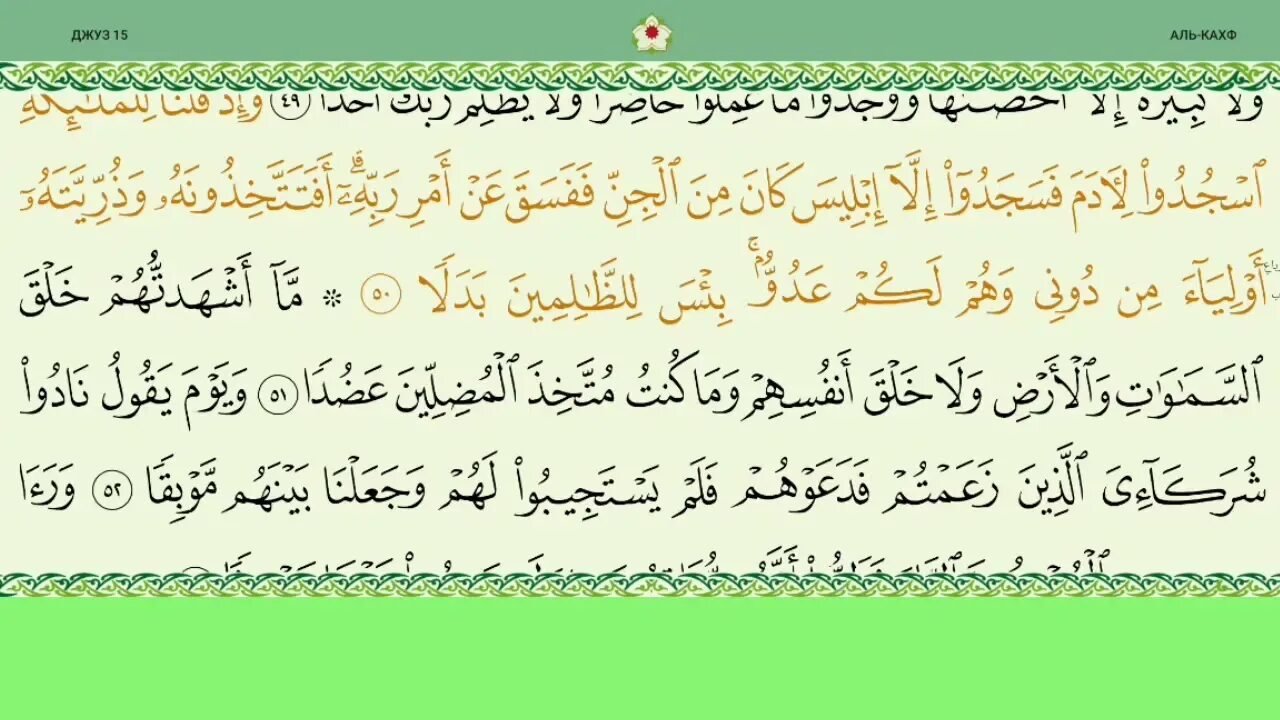 ДЖУЗ 15
АЛЬ-КАХФ
وَلَا كَبِيرَةً إِلَّآ أَحْصَىٰهَا وَوَجَدُوا۟ مَا عَمِلُوا۟ حَاضِرًا وَلَا يَظْلِمُ رَبُّكَ أَحَدًا ٤٩ وَإِذْ قُلْنَا لِلْمَلَٰٓئِكَةِ
ٱسْجُدُوا۟ لِأٓدَمَ فَسَجَدُوٓا۟ إِلَّآ إِبْلِيسَ كَانَ مِنَ ٱلْجِنِّ فَفَسَقَ عَنْ أَمْرِ رَبِّهِۦٓ ۗ أَفَتَتَّخِذُونَهُۥ وَذُرِّيَّتَهُۥٓ
أَوْلِيَآءَ مِن دُونِى وَهُمْ لَكُمْ عَدُوٌّۢ ۚ بِئْسَ لِلظَّٰلِمِينَ بَدَلًا ٥٠ ۞ مَّآ أَشْهَدتُّهُمْ خَلْقَ
ٱلسَّمَٰوَٰتِ وَٱلْأَرْضِ وَلَا خَلْقَ أَنفُسِهِمْ وَمَا كُنتُ مُتَّخِذَ ٱلْمُضِلِّينَ عَضُدًا ٥١ وَيَوْمَ يَقُولُ نَادُوا۟
شُرَكَآءِىَ ٱلَّذِينَ زَعَمْتُمْ فَدَعَوْهُمْ فَلَمْ يَسْتَجِيبُوا۟ لَهُمْ وَجَعَلْنَا بَيْنَهُم مَّوْبِقًا ٥٢ وَرَءَا